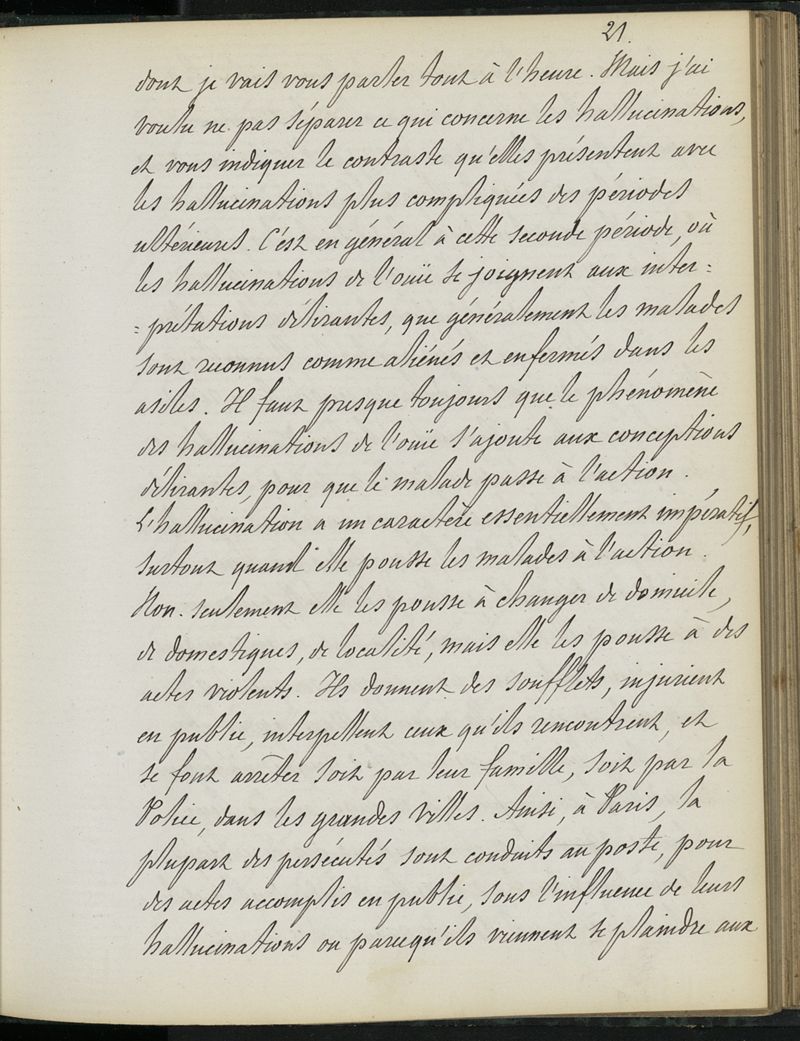 21.
dont je vais vous parler tout à l'heure. Mais j'ai
voulu ne pas séparer ce qui concerne les hallucinations,
et vous indiquer le contraste qu'elles présentent avec
les hallucinations plus compliquées des périodes
ultérieures. C'est en général à cette seconde période, où
les hallucinations de l'ouïe se joignent aux inter=
=prétations délirantes, que généralement les malades
sont reconnus comme aliénés et enfermés dans les
asiles. Il faut presque toujours que le phénomène
des hallucinations de l'ouïe s'ajoute aux conceptions
délirantes, pour que le malade passe à l'action.
L'hallucination a un caractère essentiellement impératif,
surtout quand elle pousse les malades à l'action.
Non-seulement elle les pousse à changer de domicile,
de domestiques, de localité, mais elle les pousse à des
actes violents. Ils donnent des soufflets, injurient
en public, interpellent ceux qu'ils rencontrent, et
se font arrêter soit par leur famille, soit par la
Police, dans les grandes villes. Ainsi, à Paris, la
plupart des persécutés sont conduits au poste, pour
des actes accomplis en public, sous l'influence de leurs
hallucinations ou parcequ'ils viennent se plaindre aux